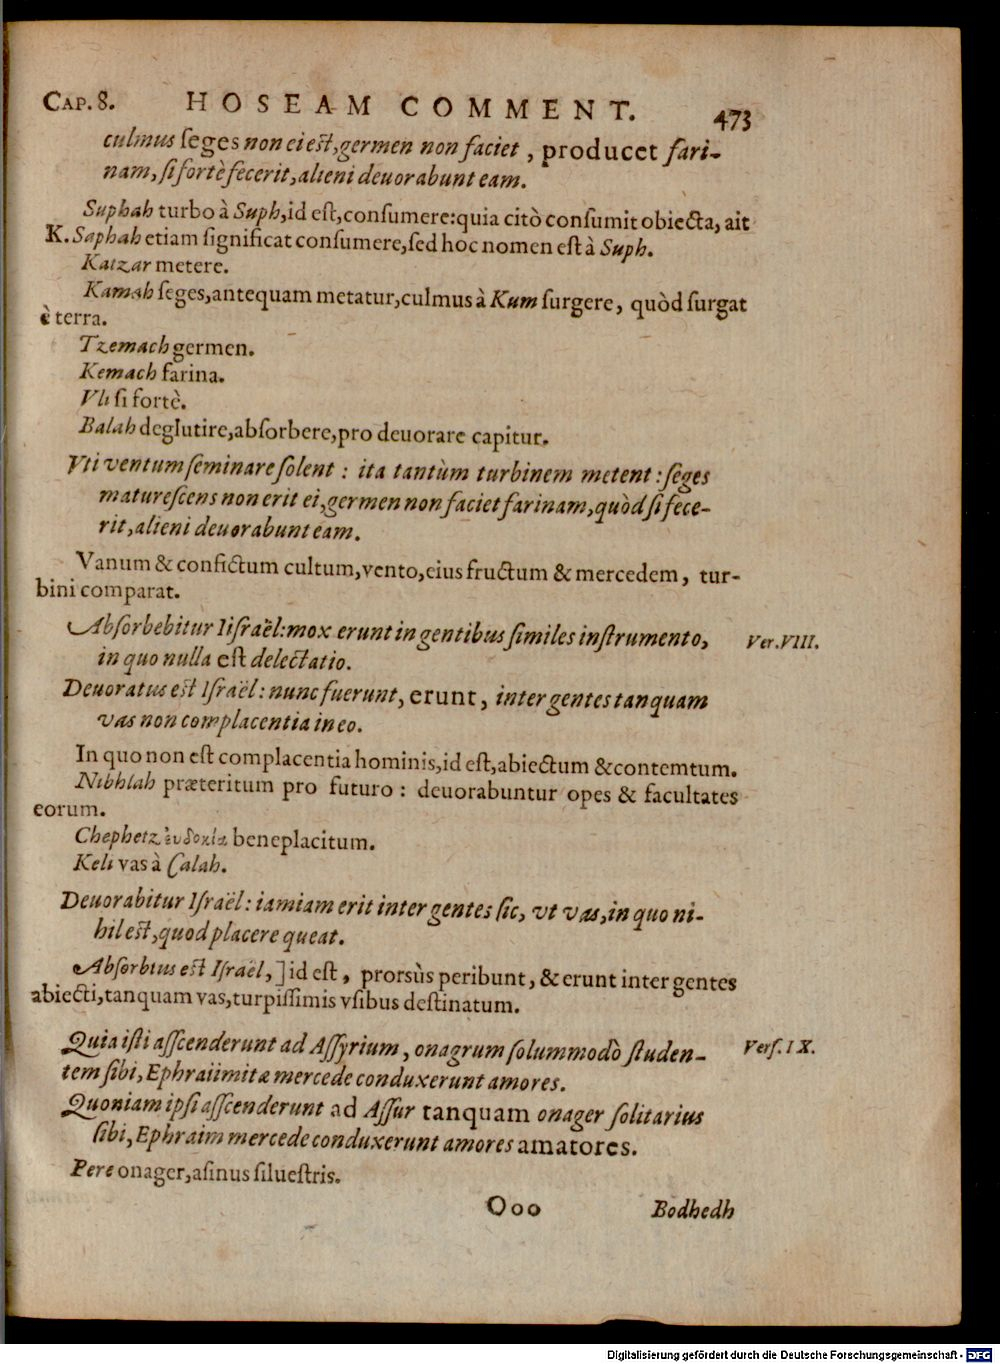 CAP. 8. HOSEAM COMMENT. 473
culmus seges non ei est, germen non faciet, producet fari-
nam, si fortè fecerit, alieni deuorabunt eam.
Suphah turbo à Suph, id est, consumere: quia citò consumit obiecta, ait
K. Saphah etiam significat consumere, sed hoc nomen est à Suph.
Katzar metere.
Kamah seges, antequam metatur, culmus à Kum surgere, quòd surgat
è terra.
Tzemach germen.
Kemach farina.
Vli si fortè.
Balah deglutire, absorbere, pro deuorare capitur.
Vti ventum seminare solent: ita tantùm turbinem metent: seges
maturescens non erit ei, germen non faciet farinam, quòd si fece-
rit, alieni deuorabunt eam.
Vanum & confictum cultum, vento, eius fructum & mercedem, tur-
bini comparat.
Absorbebitur Iisraël: mox erunt in gentibus similes instrumento,
in quo nulla est delectatio.
Ver. VIII.
Deuoratus est Israël: nunc fuerunt, erunt, inter gentes tanquam
vas non complacentia in eo.
In quo non est complacentia hominis, id est, abiectum & contemtum.
Nibhlah præteritum pro futuro: deuorabuntur opes & facultates
eorum.
Chephetz ἐυδοκία beneplacitum.
Keli vas à Calah.
Deuorabitur Israël: iamiam erit inter gentes sic, vt vas, in quo ni-
hil est, quod placere queat.
Absorbtus est Israël, ] id est, prorsùs peribunt, & erunt inter gentes
abiecti, tanquam vas, turpissimis vsibus destinatum.
Quia isti asscenderunt ad Assyrium, onagrum solummodò studen-
tem sibi, Ephraiimitæ mercede conduxerunt amores.
Vers. IX.
Quoniam ipsi asscenderunt ad Assur tanquam onager solitarius
sibi, Ephraim mercede conduxerunt amores amatores.
Pere onager, asinus siluestris.
Ooo Bodhedh
Digitalisierung gefördert durch die Deutsche Forschungsgemeinschaft - DFG